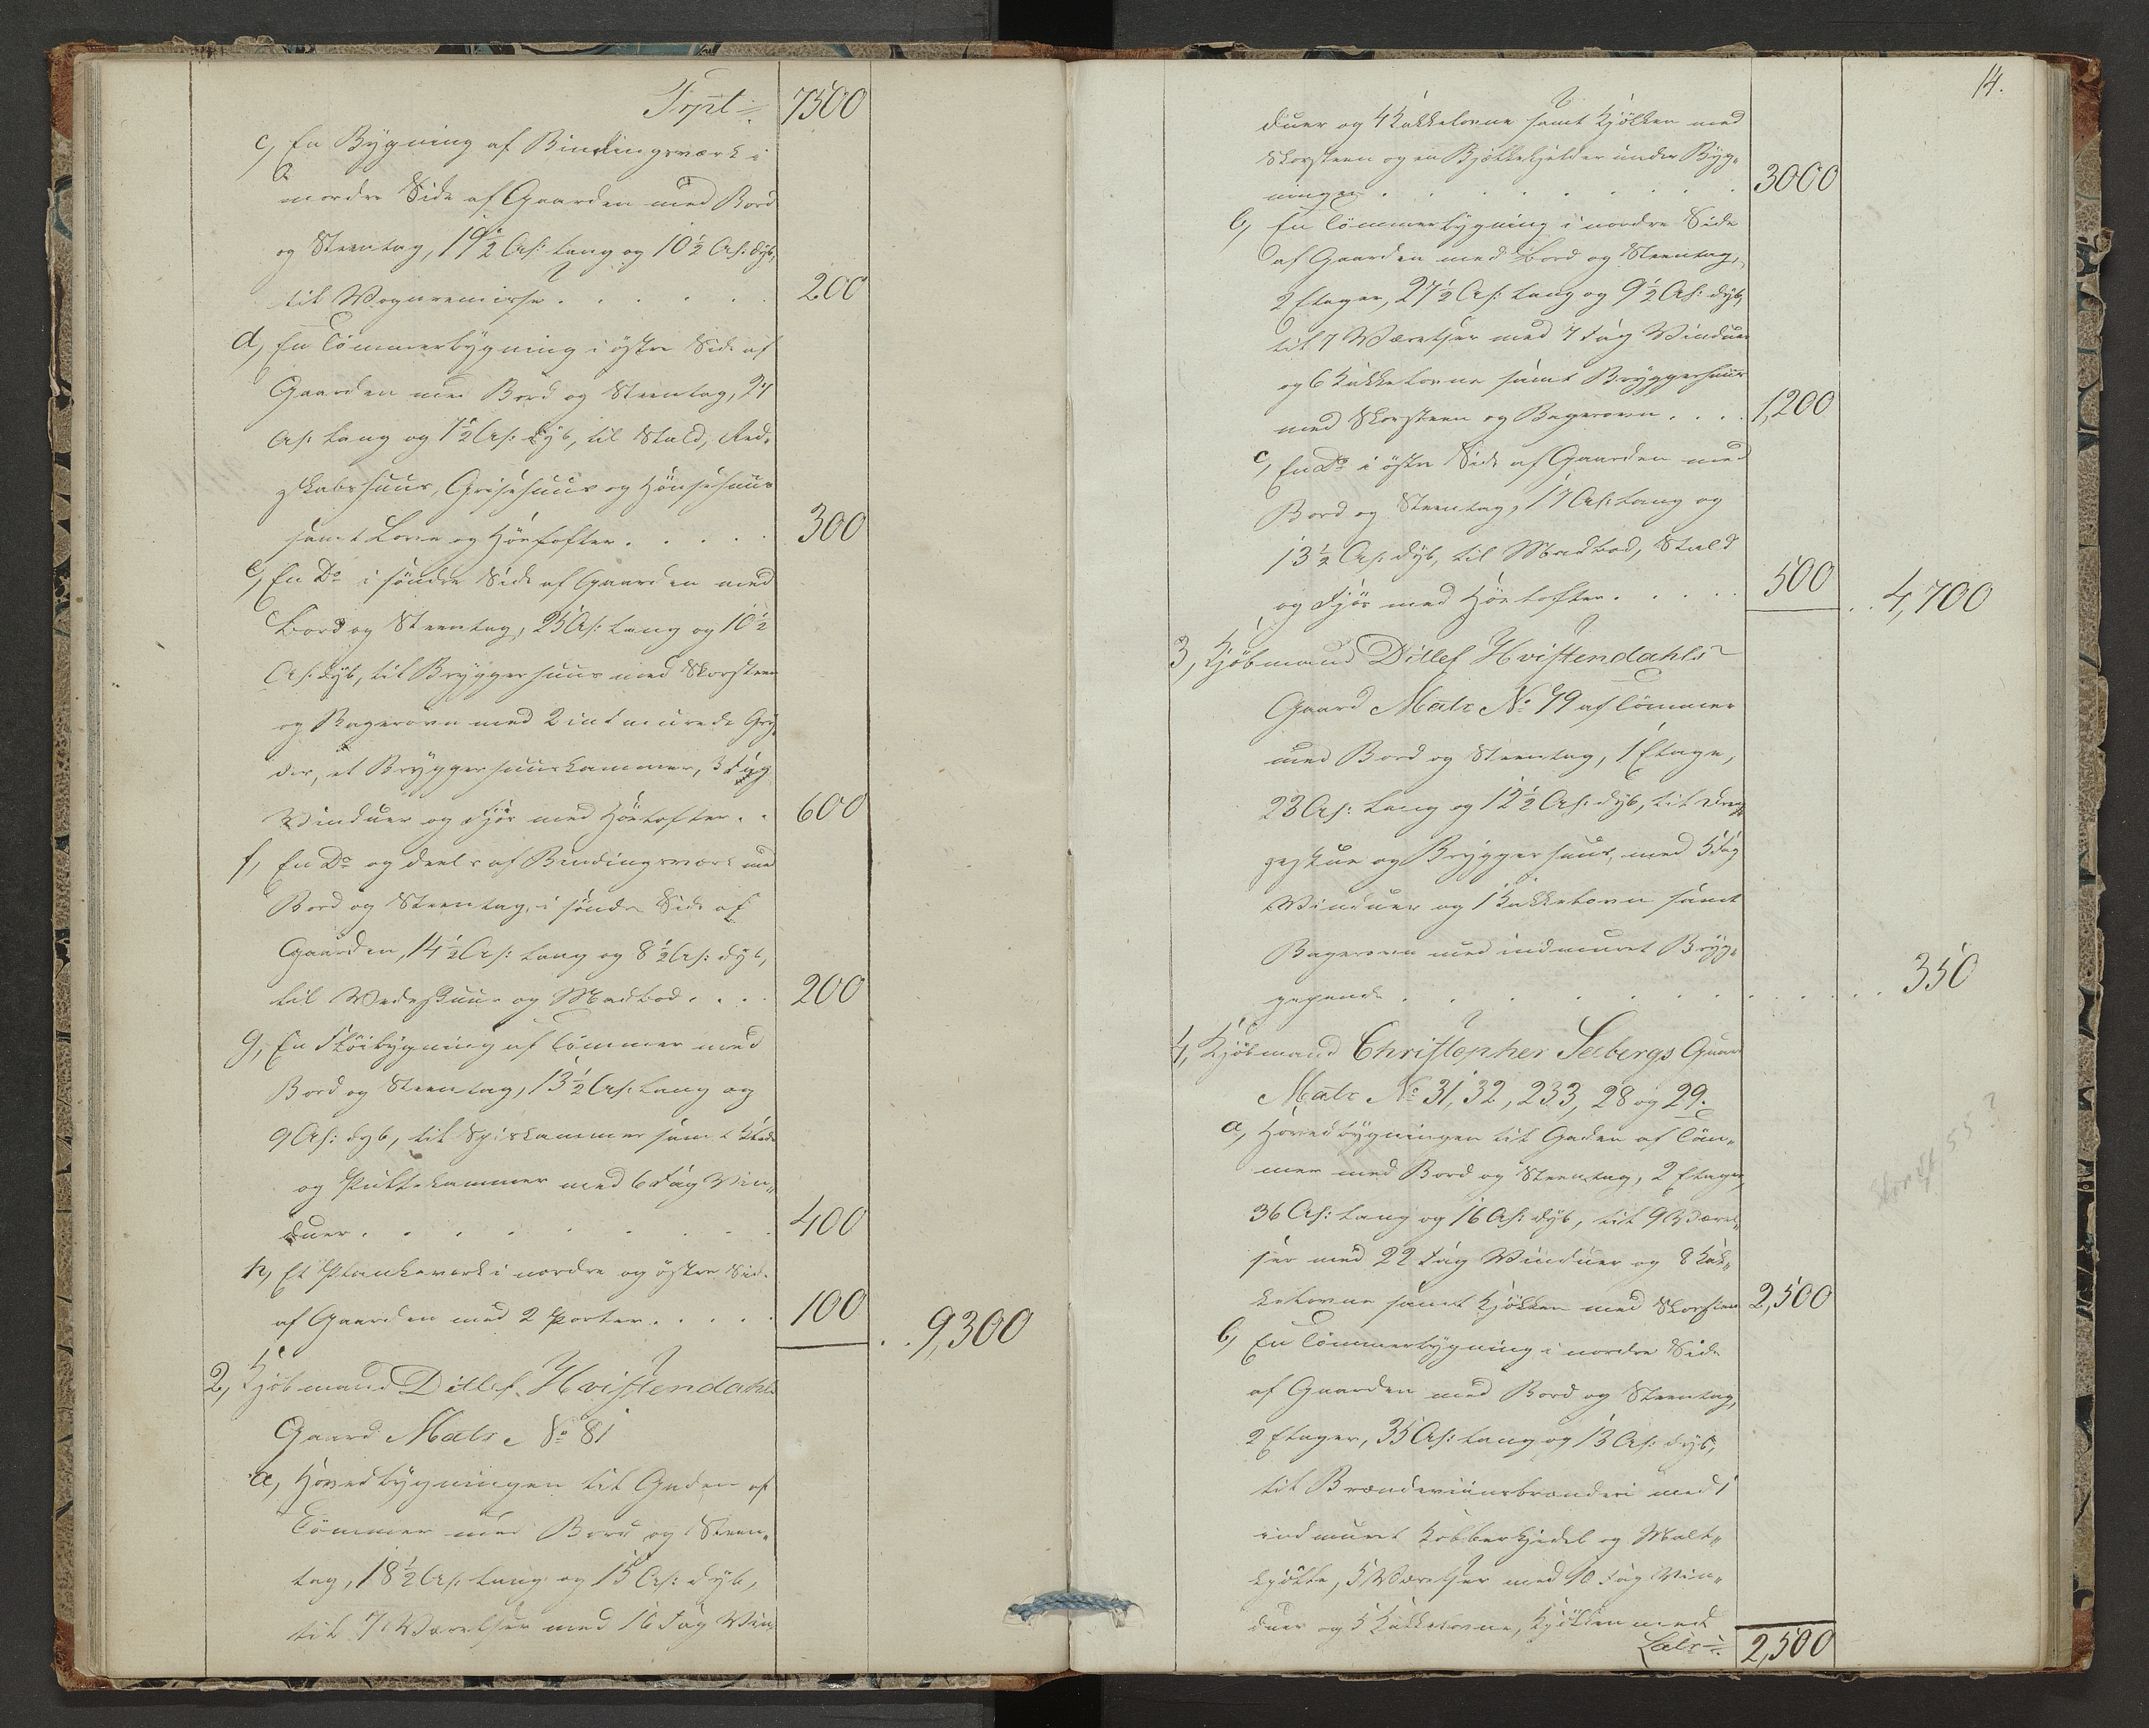 Trpt ÷ 7500
c, En Bygning af Bindingsværk i
nordre Side af Gaarden med Bord
og Steentag, 19½ Al: lang og 10½ Al: dyb,
til Vognremisse . . . . . . 200
d, En Tömmerbygning i östre Side af
Gaarden med Bord og Steentag, 24
Al: lang og 7½ Al: dyb, til Stald, Red-
skabshuus, Grisehuus og Hönsehuus
samt Love og Höelofter . . . . . 300
e, En Do i söndre Side af Gaarden med
Bord og Steentag, 25 Al: lang og 10½
Al: dyb, til Bryggerhuus med Skorsteen
og Bagerovn med 2 indmurede Gry-
der, et Bryggerhuuskammer, 3 Fag
Vinduer og Fjös med Höelofter . . 600
f, En Do og deels af Bindingsværk med
Bord og Steentag, i söndre Side af
Gaarden, 14½ Al: lang og 8½ Al: dyb,
til Vedeskuur og Madbod . . . 200
g, En Flöibygning af Tömmer med
Bord og Steentag, 13½ Al: lang og
9 Al: dyb, til Spiskammer samt
og Rullekammer med 6 Fag Vin-
duer . . . . . . . . 400
h, Et Plankeverk i nordre og östre Side
af Gaarden med 2 Porter . . . . . 100 . . 9,300
2, Kjöbmand Ditlef Hvistendahls
Gaard Matr No 81
a, Hovedbygningen til Gaden af
Tömmer med Bord og Steen-
tag, 18½ Al: lang og 15 Al: dyb,
til 7 Værelser med 16 Fag Vin-
14.
duer og 4 Kakkelovne samt Kjökken med
Skorsteen og en Bjelkekjelder under Byg-
ningen . . . . . . . . 3000
b, En Tömmerbygning i nordre Side
af Gaarden med Bord og Steentag,
2 Etager, 27½ Al: lang og 9½ Al: dyb,
til 7 Værelser med 7 Fag Vinduer
og 6 Kakkelovne samt Bryggerhuus
med Skorsteen og Bagerovn . . . . 1,200
c, En Do i östre Side af Gaarden med
Bord og Steentag, 17 Al: lang og
13½ Al: dyb, til Madbod, Stald
og Fjös med Höelofter . . . . . 500 . . 4,700
3, Kjöbmand Ditlef Hvistendahls
Gaard Matr No 79 af Tömmer
med Bord og Steentag, 1 Etage,
23 Al: lang og 12½ Al: dyb, til Dren-
gestue og Bryggerhuus, med 5 Fag
Vinduer og 1 Kakkelovn samt
Bagerovn med indmuret Bryg-
gepande . . . . . . . . . . 350
4, Kjöbmand Christopher Seebergs Gaard
Matr No 31, 32, 233, 28 og 29.
a, Hovedbygningen til Gaden af Töm-
mer med Bord og Steentag, 2 Etager,
36 Al: lang og 16 Al: dyb, til 9 Værel-
ser med 22 Fag Vinduer og 8 Kak-
kelovne samt Kjökken med Skorsteen 2,500
b, En Tömmerbygning i nordre Side
af Gaarden med Bord og Steentag,
2 Etager, 35 Al: lang og 13 Al: dyb,
til Brændeviinsbrænderi med 1
indmuret Kobberkjedel og Malt-
kjölle, 5 Værelser med 10 Fag Vin-
duer og 5 Kakkelovne, Kjökken med
Latr ÷ 2,500